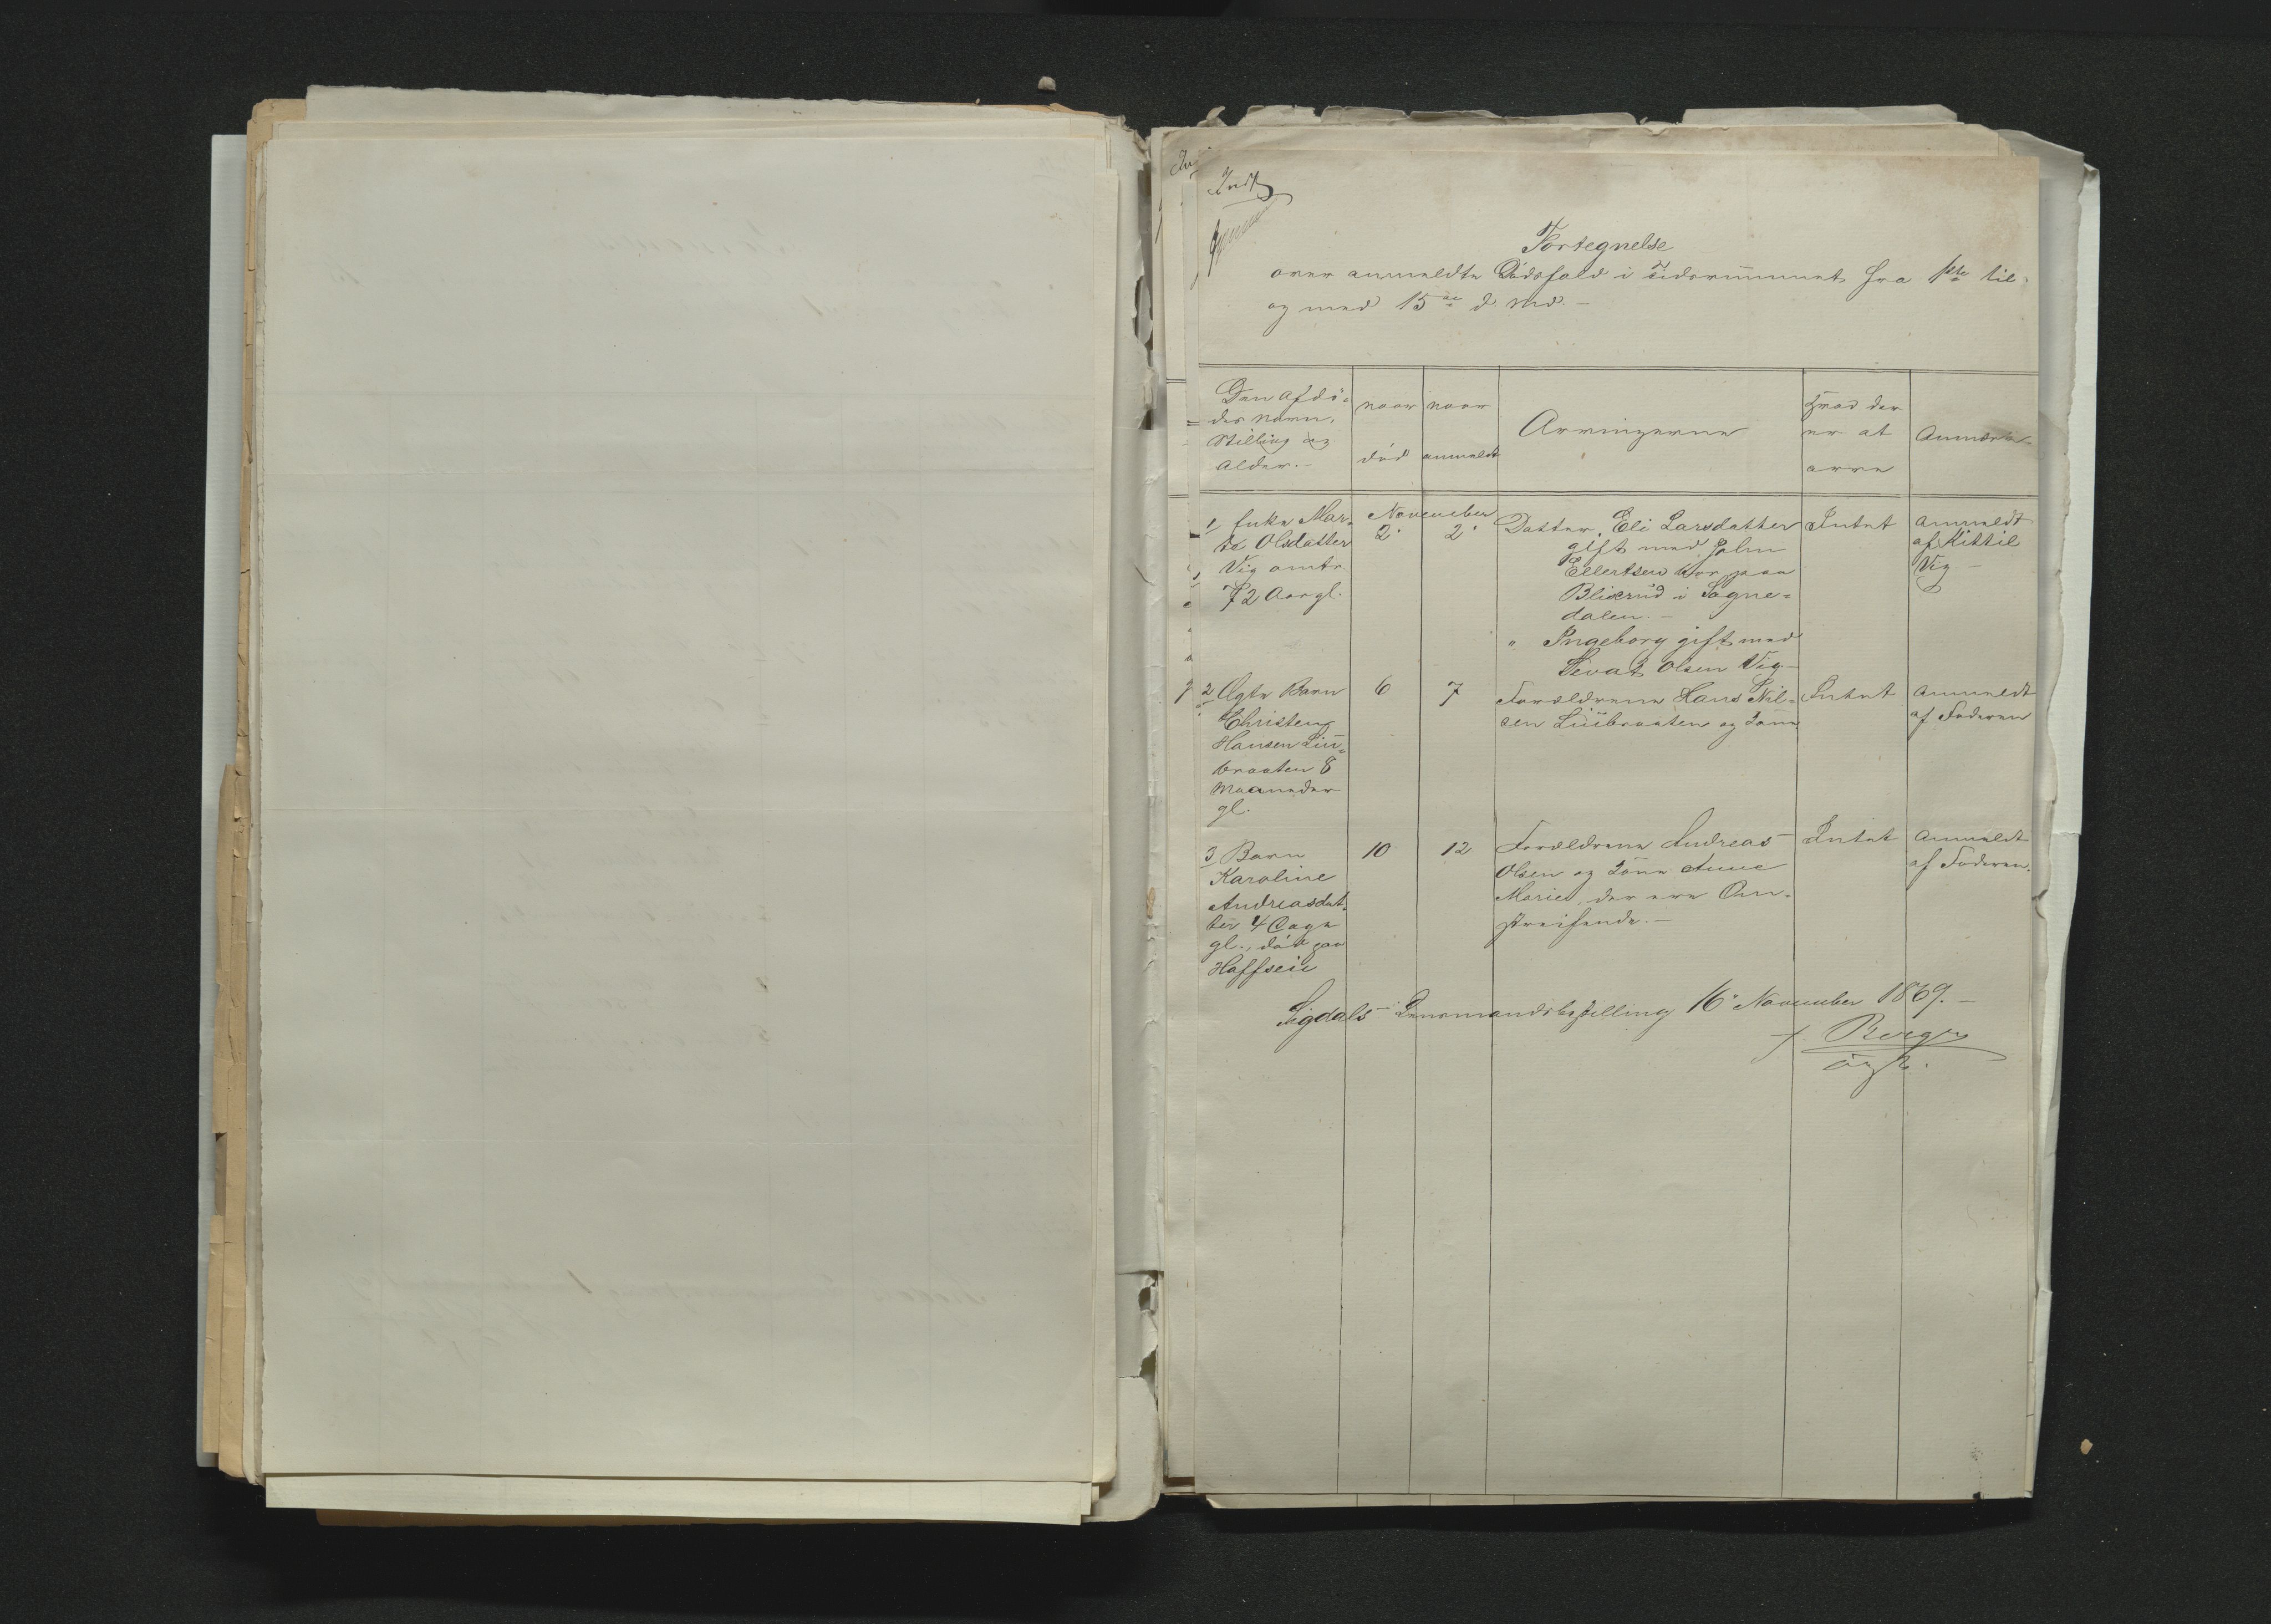 Indf
Fortegnelse
over anmeldte Dödsfald i Tidsrummet fra 1ste til
og med 15de d. Md. —
Den afdö=
des Navn,
Stilling og
Alder. —
naar
död
naar
anmeldt
Arvingerne
Hvad der
er at
arve
Anmærkn.
1 Enke Mar=
te Olsdatter
Vig omtr.
72 Aar gl.
November
2.
2.
Datter, Eli Larsdatter
gift med John
Ellertsen bor paa
Blikrud i Sogne=
dalen. —
" Ingeborg gift med
Sivat Olsen Vig. —
Intet
Anmeldt
af Kittil
Vig —
2 Ægte Barn
Christen
Hansen Liu=
braaten 8
Maaneder
gl.
6
7
Forældrene Hans Nil=
sen Liubraaten og Kone
Intet
Anmeldt
af Faderen
3 Barn
Karoline
Andreasdat=
ter 4 Dage
gl., död paa
Haffsein
10
12
Forældrene Andreas
Olsen og Kone Anne
Marie, der ere Om=
streifende. —
Intet
Anmeldt
af Faderen.
Sigdals Lensmandsbestilling 16. November 1869. —
Berger